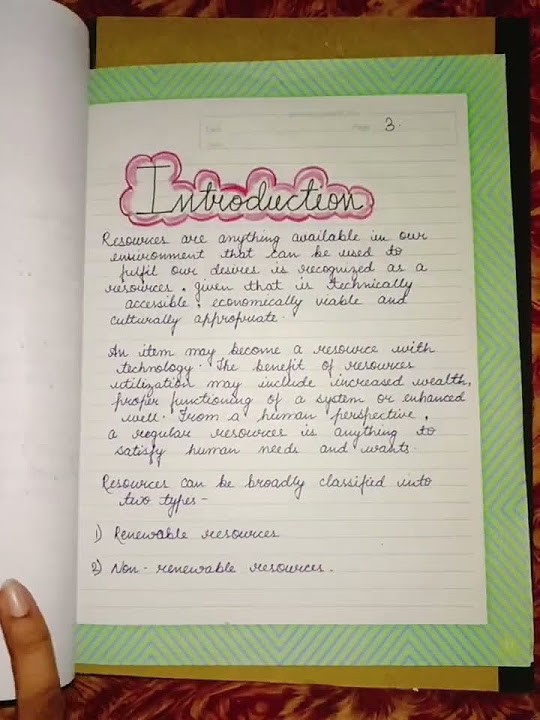 Page 3.
Introduction
Resources are anything available in our
environment that can be used to
fulfil our desires is recognized as a
resources, given that is technically
accessible, economically viable and
culturally appropriate.
An item may become a resource with
technology. The benefit of resources
utilization may include increased wealth,
proper functioning of a system or enhanced
well. From a human perspective,
a regular resources is anything to
satisfy human needs and wants.
Resources can be broadly classified into
two types -
1) Renewable resources
2) Non-renewable resources.